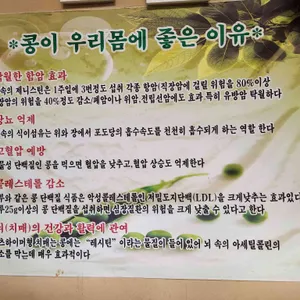 *콩이 우리몸에 좋은 이유*
월한 항암 효과
속의 제니스틴은 1주일에 3번정도 섭취 각종 항암(직장암에 걸릴 위험을 80%이상
방암의 위험을 40%정도 감소/폐암이나 위암,전립선암에도 효과 특히 유방암 탁월하다
당뇨 억제
속의 식이섬유는 위와 장에서 포도당의 흡수속도를 천천히 흡수되게 하는 역할 한다
고혈압 예방
물성 단백질인 콩을 먹으면 혈압을 낮추고,혈압 상승도 억제한다
콜레스테롤 감소
부와 같은 콩 단백질 식품은 악성콜레스테롤인 저밀도지단백(LDL)을 크게낮추는효과있다
루25g이상의 콩 단백질을 섭취하면 심장질환의 위험을 크게 낮출 수 있다고 한다
(치매)의 건강과 활력에 관여
츠하이머형치매는 콩에는 "레시틴"이라는 물질이 들어있어 뇌 속의 아세틸콜린의
소를 막는데 매우 효과적이다